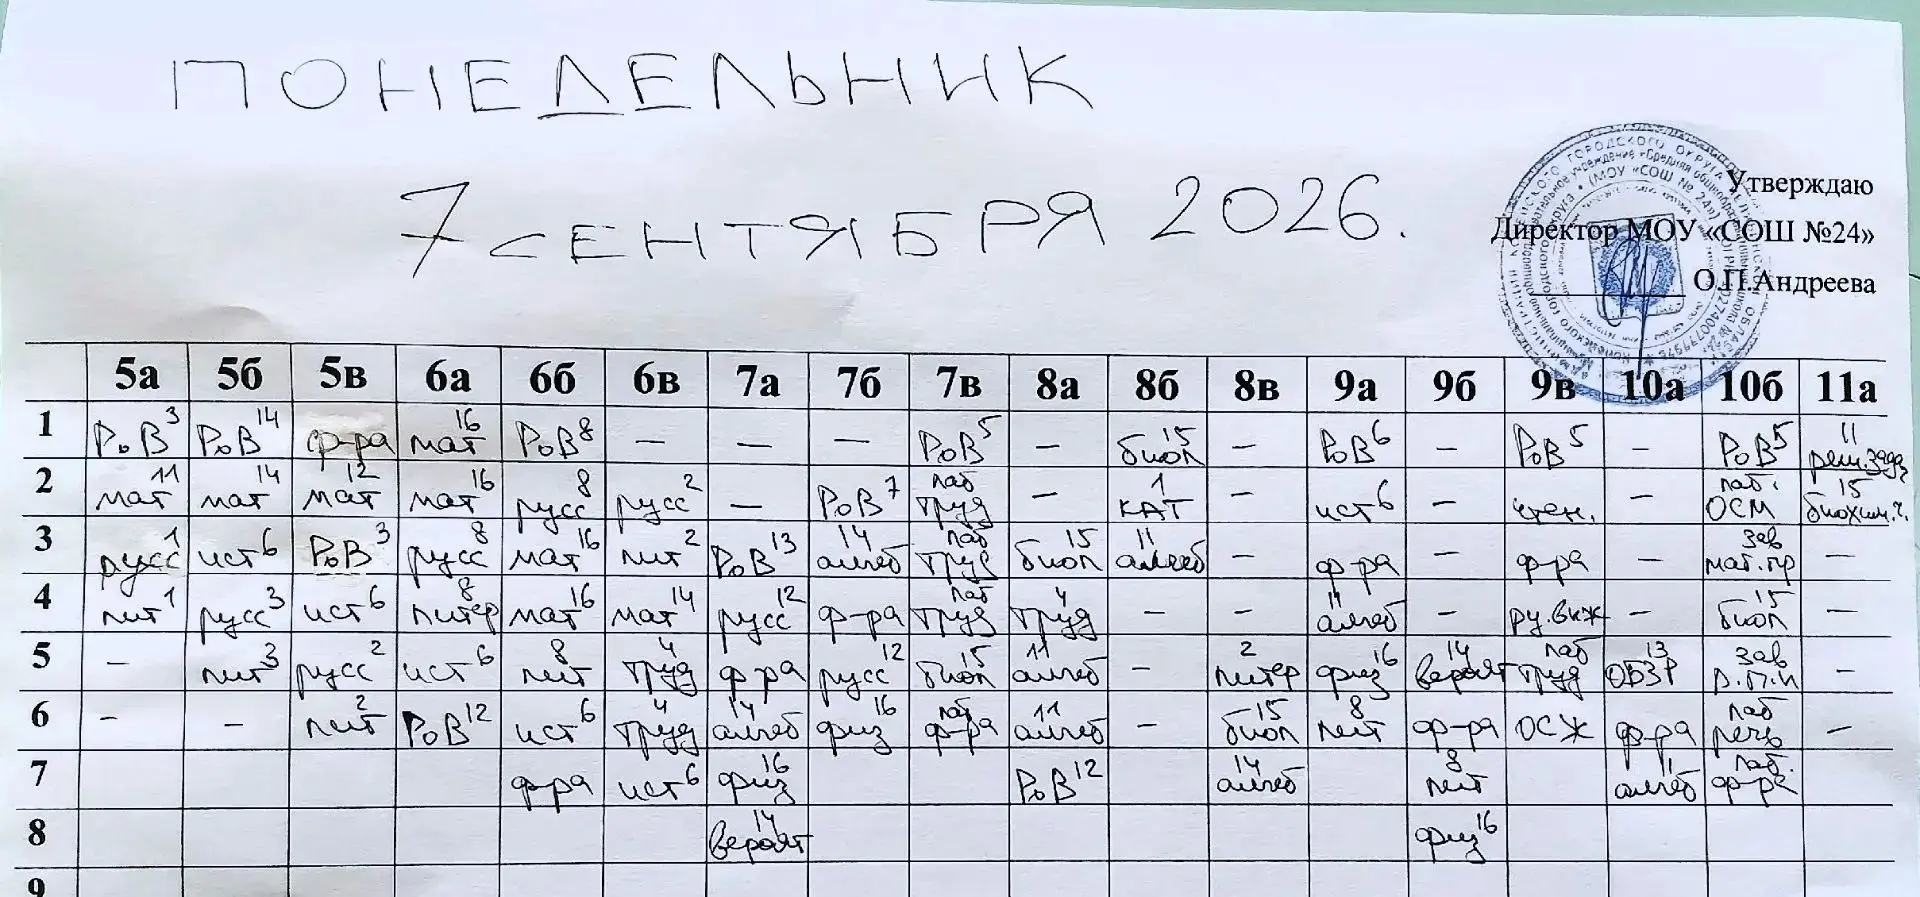 ПОНЕДЕЛЬНИК
7 СЕНТЯБРЯ 2026.
Утверждаю
Директор МОУ «СОШ №24»
О.П.Андреева
5а 5б 5в 6а 6б 6в 7а 7б 7в 8а 8б 8в 9а 9б 9в 10а 10б 11а
1 РоВ3 РоВ14 ф-ра мат16 РоВ8 – – – РоВ5 – биол15 – РоВ6 – РоВ5 – РоВ5 реш.задач11
2 мат11 мат14 мат12 мат16 русс8 русс2 – РоВ7 труд лаб – КАТ1 – ист6 – чтен. – ОСМ лаб. биохим.ч.15
3 русс1 ист6 РоВ3 русс8 мат16 лит2 РоВ13 алгеб14 труд лаб биол15 алгеб11 – ф-ра – ф-ра – мат.пр зав –
4 лит1 русс3 ист6 литер8 мат16 мат14 русс12 ф-ра труд лаб труд4 – – алгеб11 – ру.вкж – биол15
5 – лит3 русс2 ист6 лит8 труд4 ф-ра русс12 биол15 алгеб11 – литер2 физ16 вероят14 труд лаб ОБЗР13 зав –
6 – – лит2 РоВ12 ист6 труд4 алгеб14 физ16 ф-ра лаб алгеб11 – биол15 лит8 ф-ра ОСЖ ф-ра речь лаб –
7 ф-ра ист6 физ16 РоВ12 алгеб14 лит8 алгеб1 ф-ра лаб.
8 вероят14 физ16
9